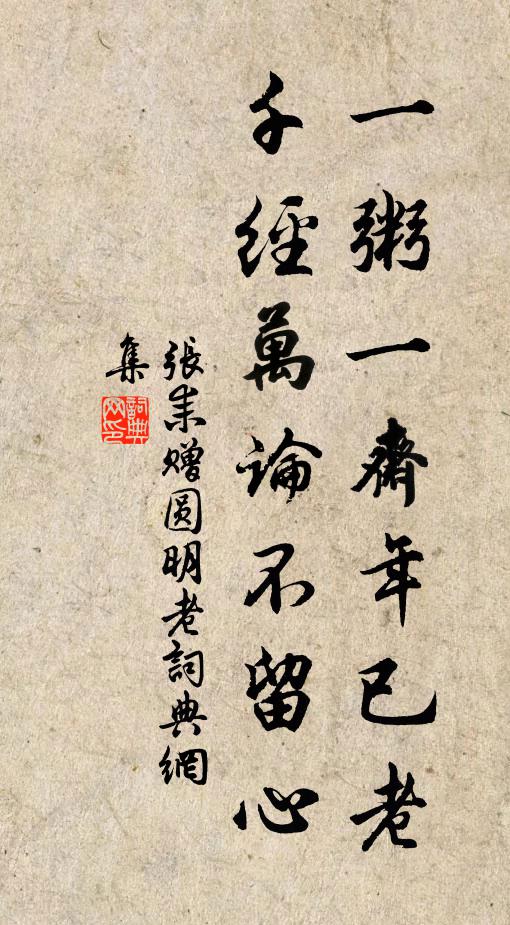 一粥一齋年已老
千經萬論不留心
張耒贈圆明老詞典網
集
詞典網印